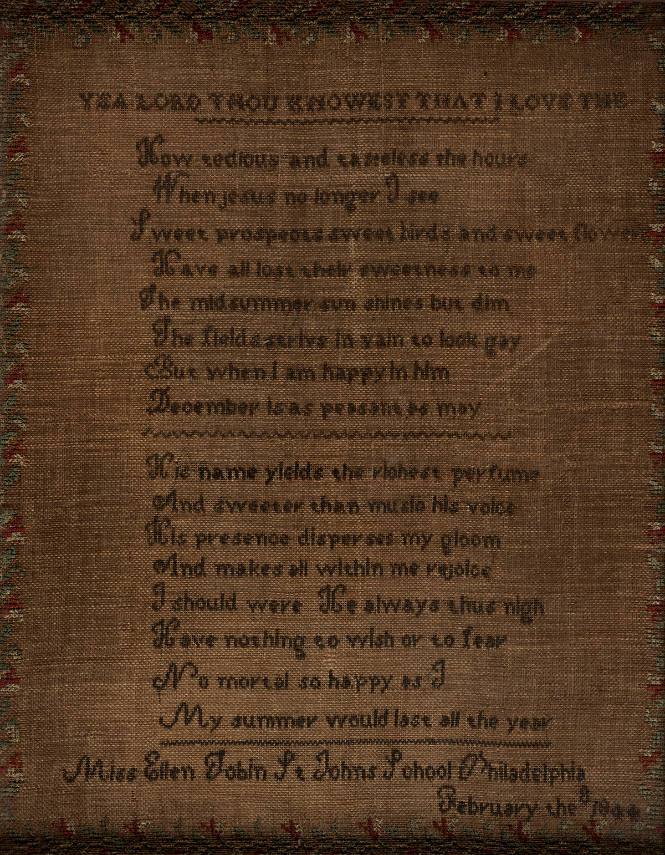 YEA LORD THOU KNOWEST THAT I LOVE THE
How tedious and tasteless the hours
When jesus no longer I see
Sweet prospects sweet birds and sweet flowers
Have all lost their sweetness to me
The midsummer sun shines but dim
The fields strive in vain to look gay
But when I am happy in him
December is as peasant as may
His name yields the richest perfume
And sweeter than music his voice
His presence disperses my gloom
And makes all within me rejoice
I should were He always thus nigh
Have nothing to wish or to fear
No mortal so happy as I
My summer would last all the year
Miss Ellen Tobin St Johns School Philadelphia
February the 8 1844